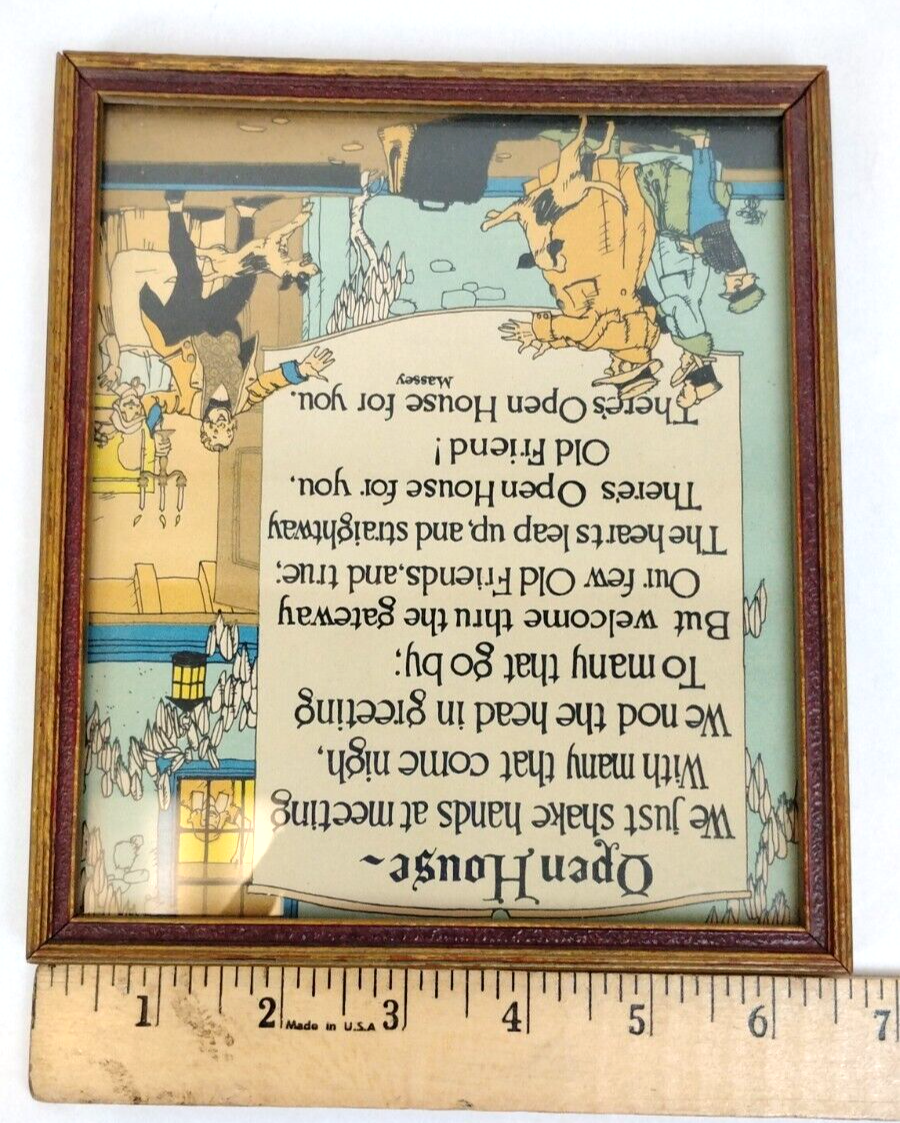 Open House~
We just shake hands at meeting
With many that come nigh,
We nod the head in greeting
To many that go by;
But welcome thru the gateway
Our few Old Friends, and true;
The hearts leap up, and straightway
There's Open House for you,
Old Friend!
There's Open House for you.
Massey
1 2 Made in U.S.A 3 4 5 6 7